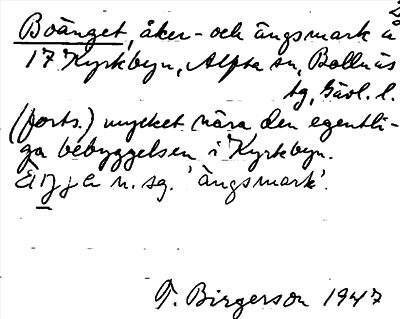 2
Boänget, åker- och ängsmark å
17 Kyrkbyn, Alfta sn, Bollnäs
tg, Gävl. l.
(forts.) mycket nära den egentli-
ga bebyggelsen i Kyrkbyn.
n. sg. 'ängsmark'.
T. Birgerson 1947